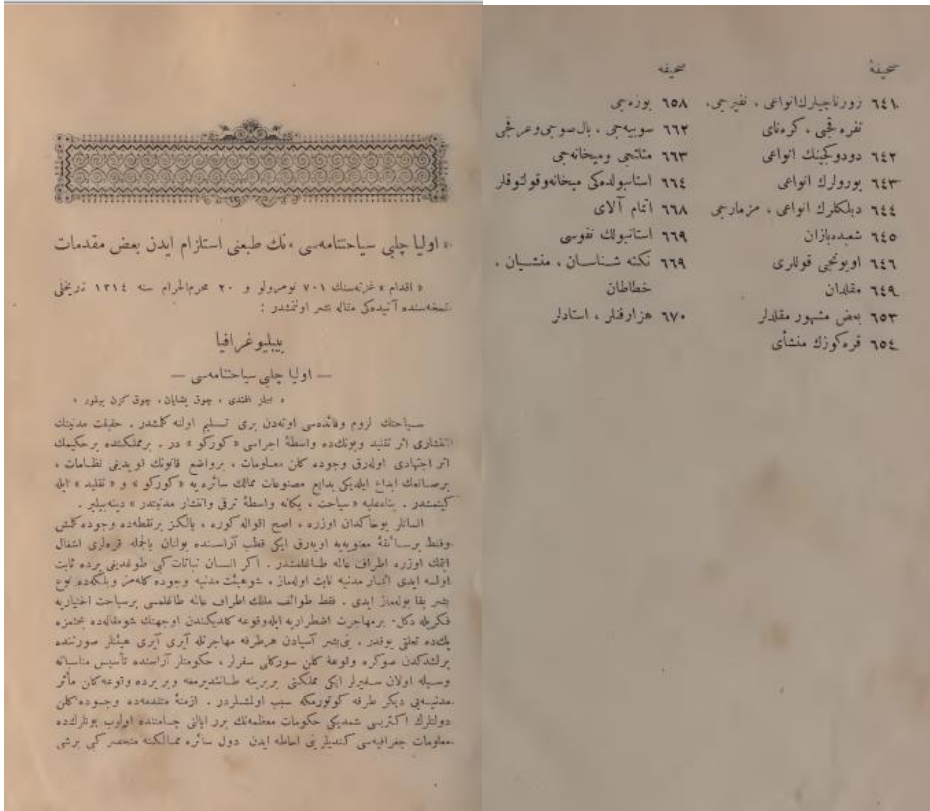 صحیفهٔ
٦٤١ زورناجیلرك انواعی ، نفیرجی،
نفره‌جی ، كره‌نای
٦٤٢ دودوكجینك انواعی
٦٤٣ بورولرك انواعی
٦٤٤ دبلكلرك انواعی ، مزمارجی
٦٤٥ شعبده‌بازان
٦٤٦ اویونجی قوللری
٦٤٩ مقلدان
٦٥٣ بعض مشهور مقلدلر
٦٥٤ قره‌كوزك منشأی
صحیفه
٦٥٨ بوزه‌جی
٦٦٢ سوبیه‌جی ، بال‌صویجی‌وعرقجی
٦٦٣ مثلثجی ومیخانه‌جی
٦٦٤ استانبولده‌كی میخانه‌وقولتوقلر
٦٦٨ اتمام آلای
٦٦٩ استانبولك نفوسی
٦٦٩ نكته شناسان ، منشیان ،
خطاطان
٦٧٠ هزارفنلر ، استادلر
« اولیا چلبی سیاحتنامه‌سی »نك طبعنی استلزام ایدن بعض مقدمات
« اقدام » غزته‌سنك ٧٠١ نومرولو و ٢٠ محرم‌الحرام سنه ١٣١٤ تاریخلی
نسخه‌سنده آتیده‌كی مقاله نشر اولنمشدر :
بیبلیوغرافیا
— اولیا چلبی سیاحتنامه‌سی —
« بیلز افندی ، چوق یشایان ، چوق كزن بیلور »
سیاحتك لزوم وفائده‌سی اوته‌دن بری تسلیم اولنه كلمشدر . حقیقت مدنیتك
انتشاری اثر تقلید وبونك‌ده واسطهٔ اجراسی « كوركو » در . برمملكتده برحكیمك
اثر اجتهادی اوله‌رق وجوده كلن معلومات ، برواضع قانونك قویدیغی نظامات ،
برصانعك ابداع ایلدیكی بدایع مصنوعات ممالك سائره یه « كوركو » و « تقلید » ایله
كیتمشدر . بناءعلیه « سیاحت ، یكانه واسطهٔ ترقی وانتشار مدنیتدر » دینه‌بیلیر .
انسانلر بوخاكدان اوزره ، اصح اقواله كوره ، یالكز برنقطه‌ده وجوده كلمش
وفقط برسائقهٔ معنویه‌یه اویه‌رق ایكی قطب آراسنده بولنان بالجمله قره‌لری اشغال
ایتمك اوزره اطراف عالمه طاغلمشدر . اكر انسان نباتات كبی طوغدیغی یرده ثابت
اولسه ایدی آثار مدنیه ثابت اوله‌ماز ، شوهیئت مدنیه وجوده كله‌مز وبلكه‌ده نوع
بشر بقا بوله‌ماز ایدی . فقط طوائف مللك اطراف عالمه طاغلمسی برسیاحت اختیاریه
فكریله دكل، برمهاجرت اضطراریه ایله‌وقوعه كلدیكندن اوجهتك شومقاله‌ده بحثمزه
پك‌ده تعلقی یوقدر . بنی‌بشر آسیادن هرطرفه مهاجرتله آیری آیری هیئتلر صورتنده
یرلشدكدن صوكره وقوعه كلن سوركلی سفرلر ، حكومتلر آراسنده تأسیس مناسباته
وسیله اولان سفیرلر ایكی مملكتی بربرینه طانیتدیرمغه وبریرده وقوعه‌كلن مآثر
مدنیه‌یی دیكر طرفه كوتورمكه سبب اولمشلردر . ازمنهٔ متقدمه‌ده وجوده‌كلن
دولتلرك اكثریسی شمدیكی حكومات معظمه‌نك برر ایالتی جسامتنده اولوب بونلرك‌ده
معلومات جغرافیه‌سی كندیلرینی احاطه ایدن دول سائره ممالكنه منحصر كبی برشی